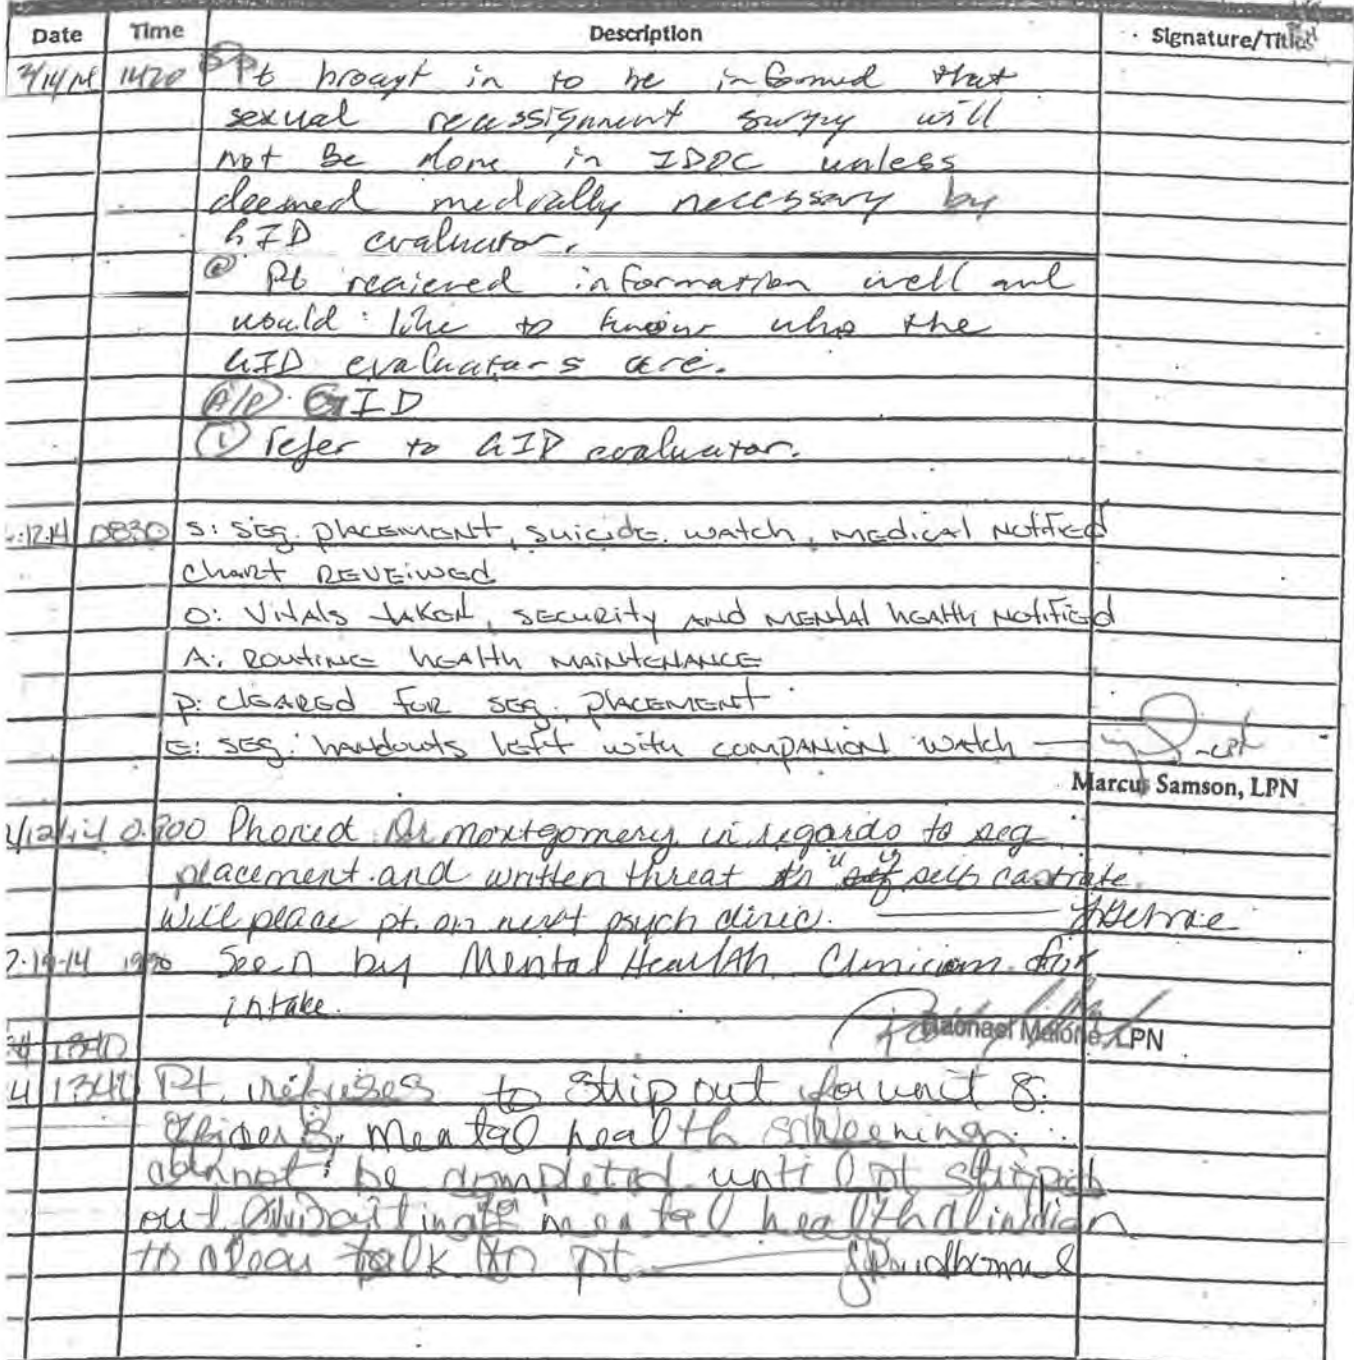 Date Time Description Signature/Title
1420 Pt brougt in to be informed that
sexual reassignment surgry will
not be done in IDOC unless
deemed medically necessary by
GID evaluator.
Pt recieved information well and
would like to know who the
GID evaluators are.
A/P GID
① refer to GID evaluator.
12.14 0830 S: SEG. PLACEMENT, SUICIDE WATCH, MEDICAL NOTIFIED
CHART REVEIWED
O: VITALS TAKEN, SECURITY AND MENTAL HEALTH NOTIFIED
A: ROUTINE HEALTH MAINTENANCE
P: CLEARED FOR SEG. PLACEMENT
E: SEG. HANDOUTS LEFT WITH COMPANION WATCH
Marcus Samson, LPN
0900 Phoned Dr Montgomery in regards to seg
placement and written threat to "self castrate"
will place pt. on next psych clinic.
Seen by Mental Health Clinician for
intake.
Rachael Malone, LPN
1340
Pt. refuses to strip out for unit 8.
mental health screening
cannot be completed until pt strips
out. Awaiting mental health clinician
to talk to pt